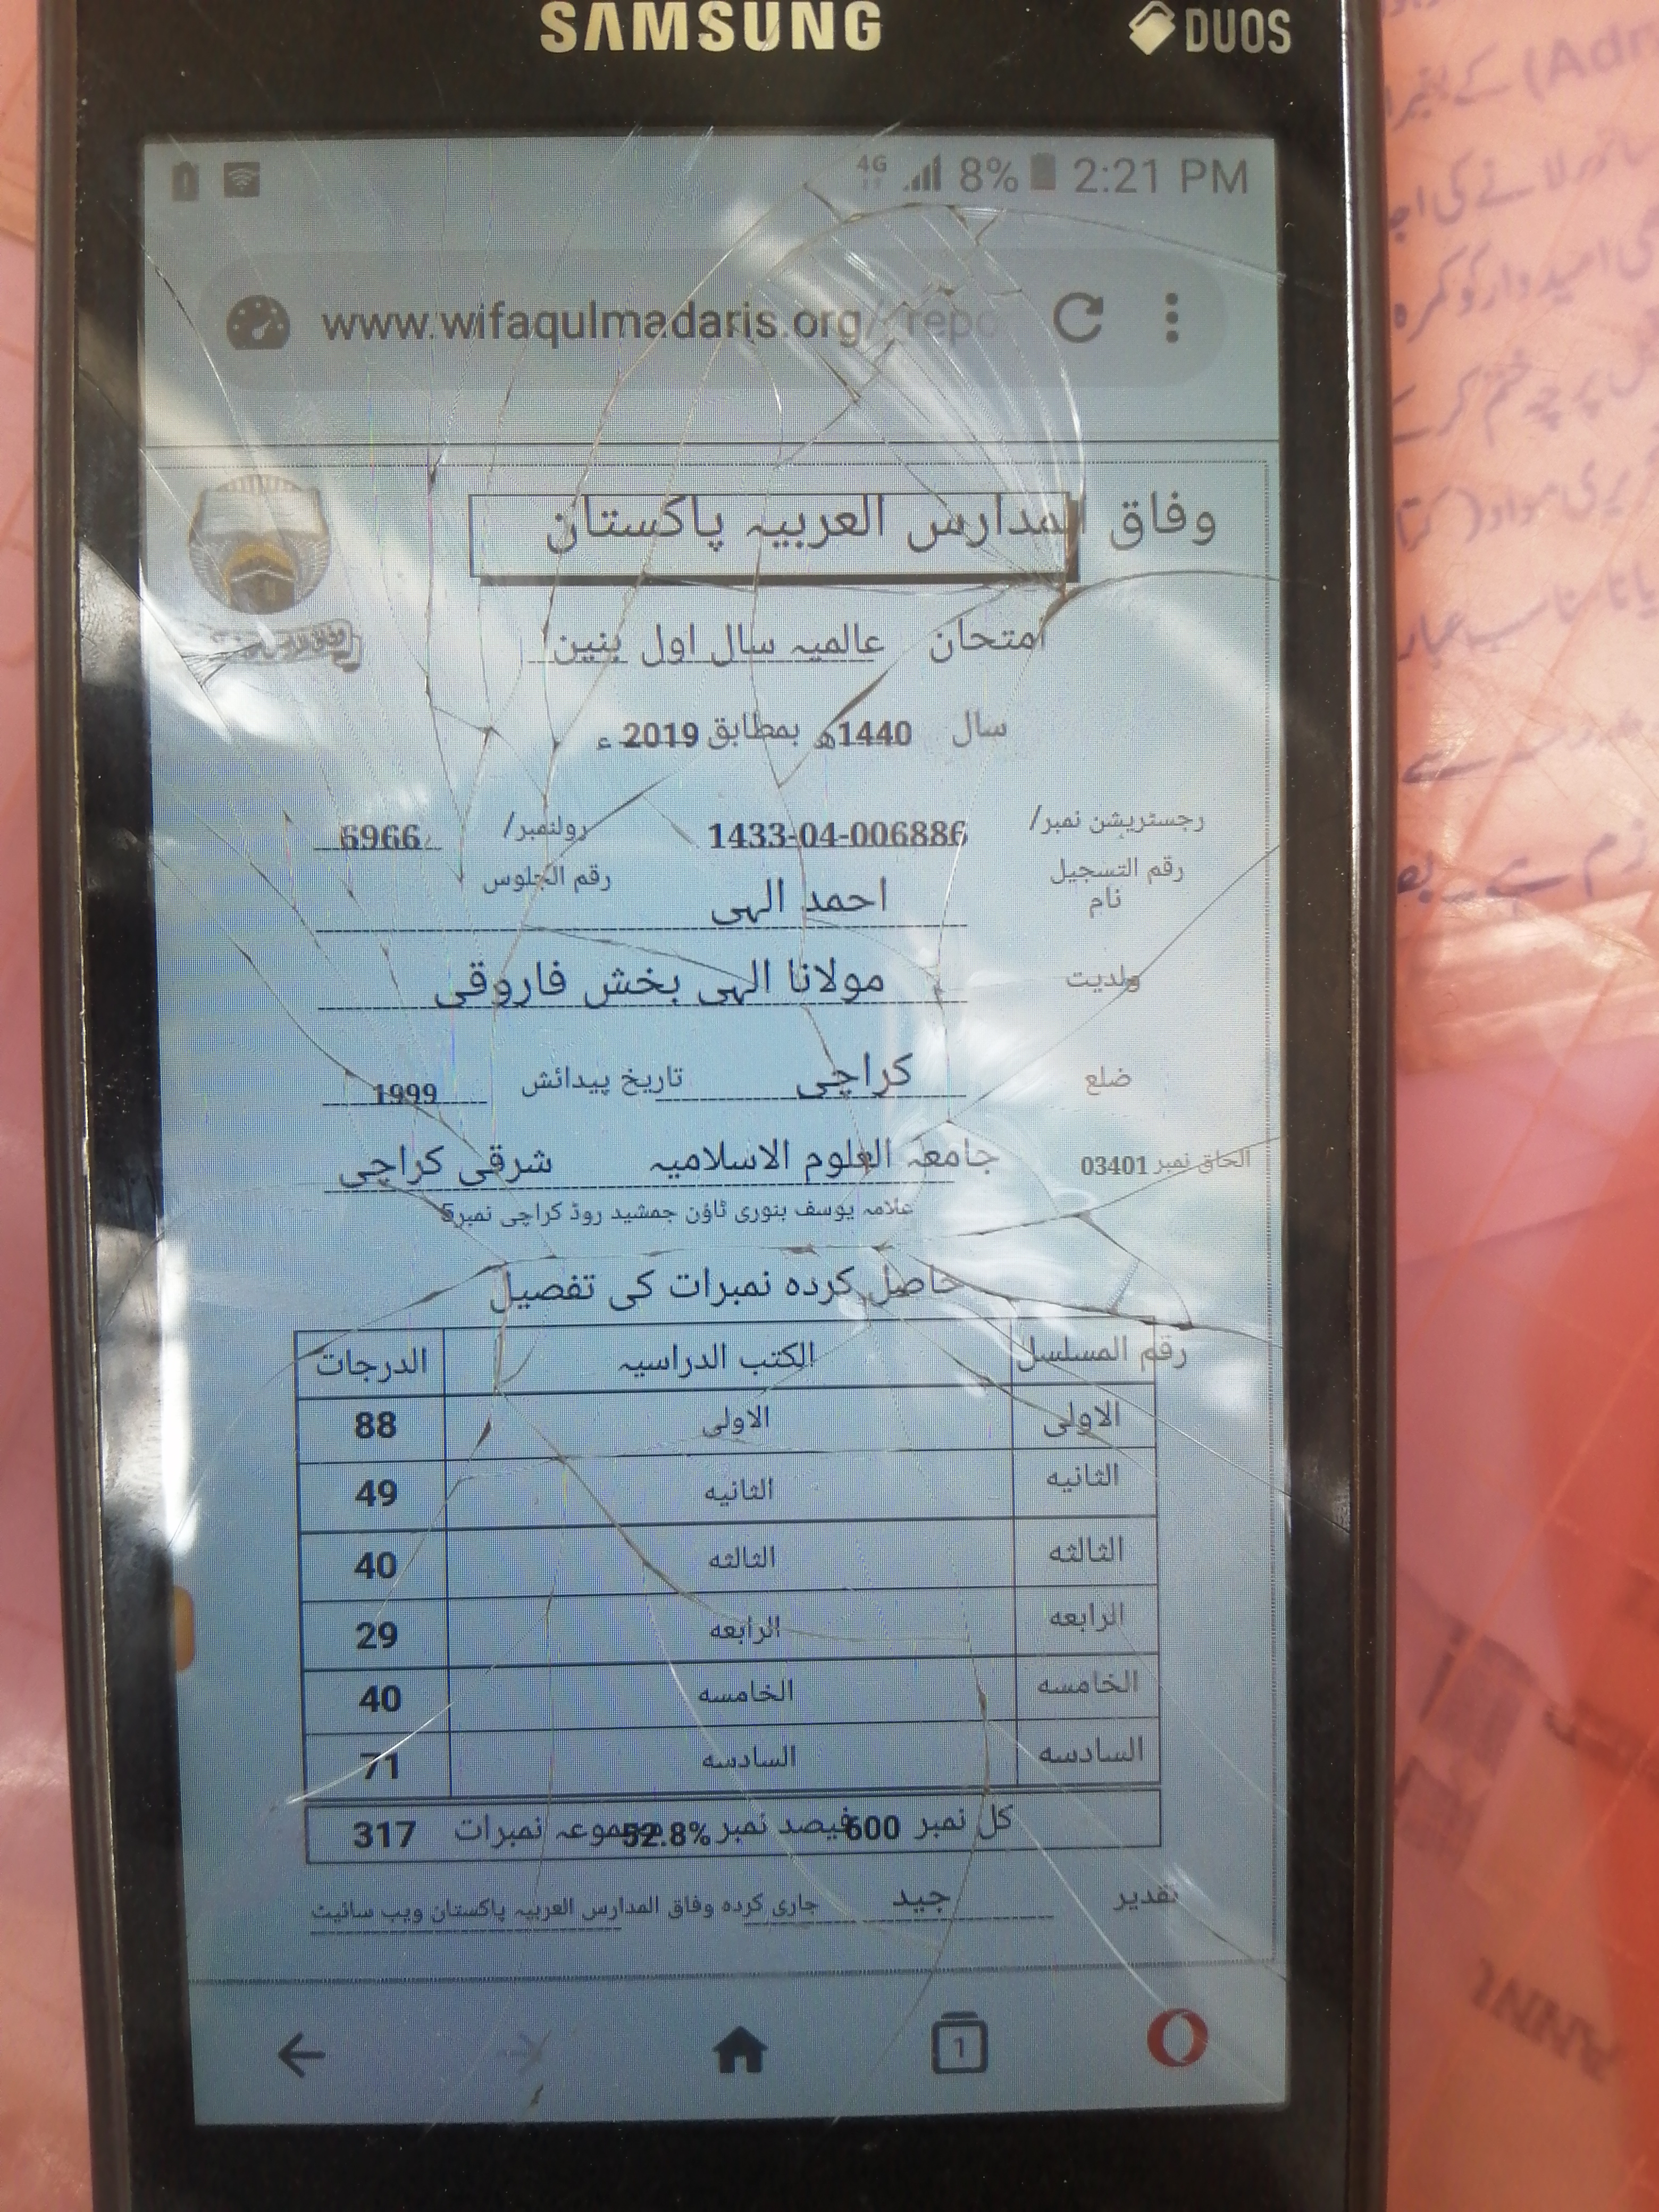 SAMSUNG DUOS
4G 8% 2:21 PM
www.wifaqulmadaris.org/
وفاق المدارس العربیہ پاکستان
امتحان عالمیہ سال اول بنین
سال 1440ھ بمطابق 2019 ء
رجسٹریشن نمبر/ 1433-04-006886 رولنمبر/ 6966
رقم التسجیل رقم الجلوس
نام احمد الہی
ولدیت مولانا الہی بخش فاروقی
ضلع کراچی تاریخ پیدائش 1999
الحاق نمبر 03401 جامعہ العلوم الاسلامیہ شرقی کراچی
علامہ یوسف بنوری ٹاؤن جمشید روڈ کراچی نمبر5
حاصل کردہ نمبرات کی تفصیل
رقم المسلسل الکتب الدراسیہ الدرجات
الاولی الاولی 88
الثانیه الثانیه 49
الثالثه الثالثه 40
الرابعه الرابعه 29
الخامسه الخامسه 40
السادسه السادسه 71
کل نمبر 600 فیصد نمبر 52.8% مجموعہ نمبرات 317
تقدیر جید جاری کردہ وفاق المدارس العربیہ پاکستان ویب سائیٹ
1
(Adm کے بغیر
امیدوار کو کمرہ
پرچہ ختم کرنے